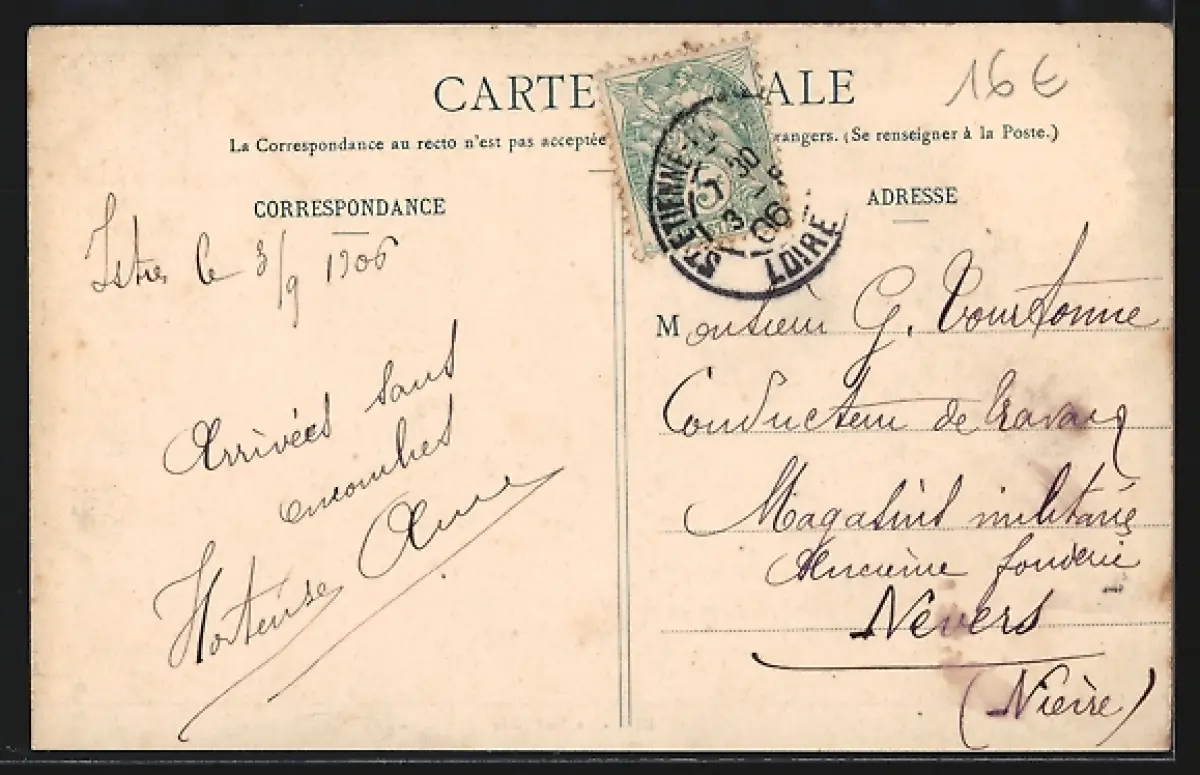 16€
CARTE ALE
La Correspondance au recto n'est pas acceptée rangers. (Se renseigner à la Poste.)
CORRESPONDANCE
ADRESSE
ST ETIENNE
5
3
06
LOIRE
le 3/9 1906
Arrivées sans
encombres
Hortense Anna
Monsieur G. Tourtonne
Conducteur de travaux
Magasins militaires
Ancienne fonderie
Nevers
(Nièvre)